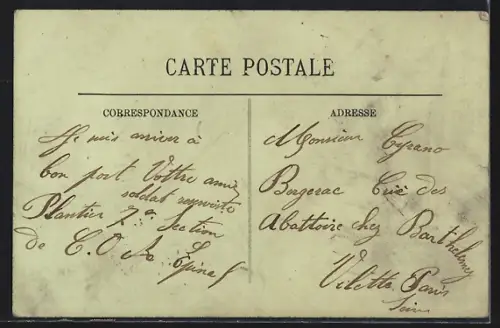 CARTE POSTALE
CORRESPONDANCE
Je suis arriver à
bon port Vottre amie
soldat reserviste
Plantier 7e Section
de C. O. A. Epinal
ADRESSE
Monsieur Cyrano
Bergerac Cité des
Abattoire chez Barthelemy
Vilette Paris
Seine